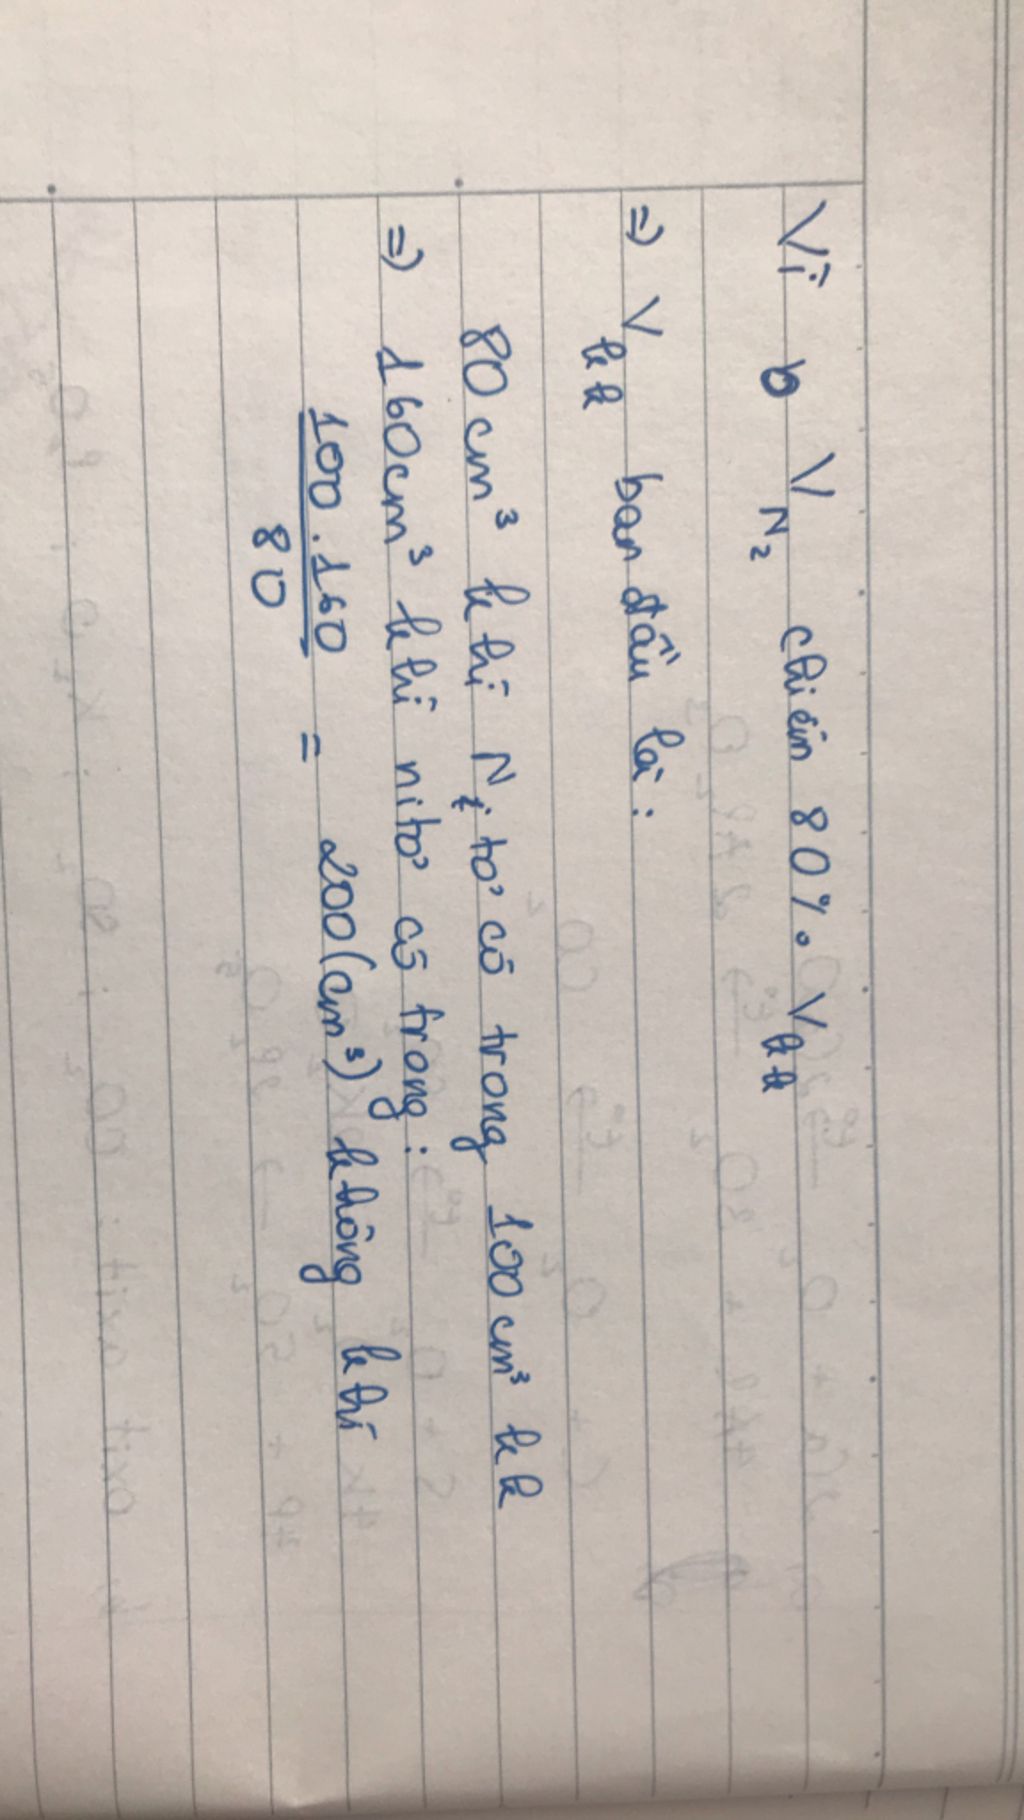 Vì V N₂ chiếm 80% V kk
=> V kk ban đầu là:
80 cm³ khí Nitơ có trong 100 cm³ kk
=> 160cm³ khí nitơ có trong:
100.160 / 80 = 200 (cm³) không khí